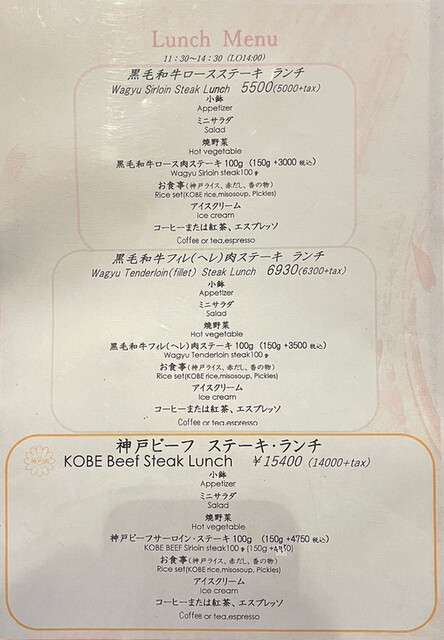 Lunch Menu
11：30～14：30 (LO14:00)
黒毛和牛ロースステーキ ランチ
Wagyu Sirloin Steak Lunch 5500(5000+tax)
小鉢
Appetizer
ミニサラダ
Salad
焼野菜
Hot vegetable
黒毛和牛ロース肉ステーキ 100g (150g +3000 税込)
Wagyu Sirloin steak100g
お食事(神戸ライス、赤だし、香の物)
Rice set(KOBE rice,misosoup, Pickles)
アイスクリーム
Ice cream
コーヒーまたは紅茶、エスプレッソ
Coffee or tea,espresso
黒毛和牛フィレ(ヘレ)肉ステーキ ランチ
Wagyu Tenderloin(fillet) Steak Lunch 6930(6300+tax)
小鉢
Appetizer
ミニサラダ
Salad
焼野菜
Hot vegetable
黒毛和牛フィレ(ヘレ)肉ステーキ 100g (150g +3500 税込)
Wagyu Tenderloin steak100g
お食事(神戸ライス、赤だし、香の物)
Rice set(KOBE rice,misosoup, Pickles)
アイスクリーム
Ice cream
コーヒーまたは紅茶、エスプレッソ
Coffee or tea,espresso
神戸ビーフ ステーキ・ランチ
KOBE Beef Steak Lunch ￥15400 (14000+tax)
小鉢
Appetizer
ミニサラダ
Salad
焼野菜
Hot vegetable
神戸ビーフサーロイン・ステーキ 100g (150g +4750 税込)
KOBE BEEF Sirloin steak100g (150g +4750)
お食事(神戸ライス、赤だし、香の物)
Rice set(KOBE rice,misosoup, Pickles)
アイスクリーム
Ice cream
コーヒーまたは紅茶、エスプレッソ
Coffee or tea,espresso